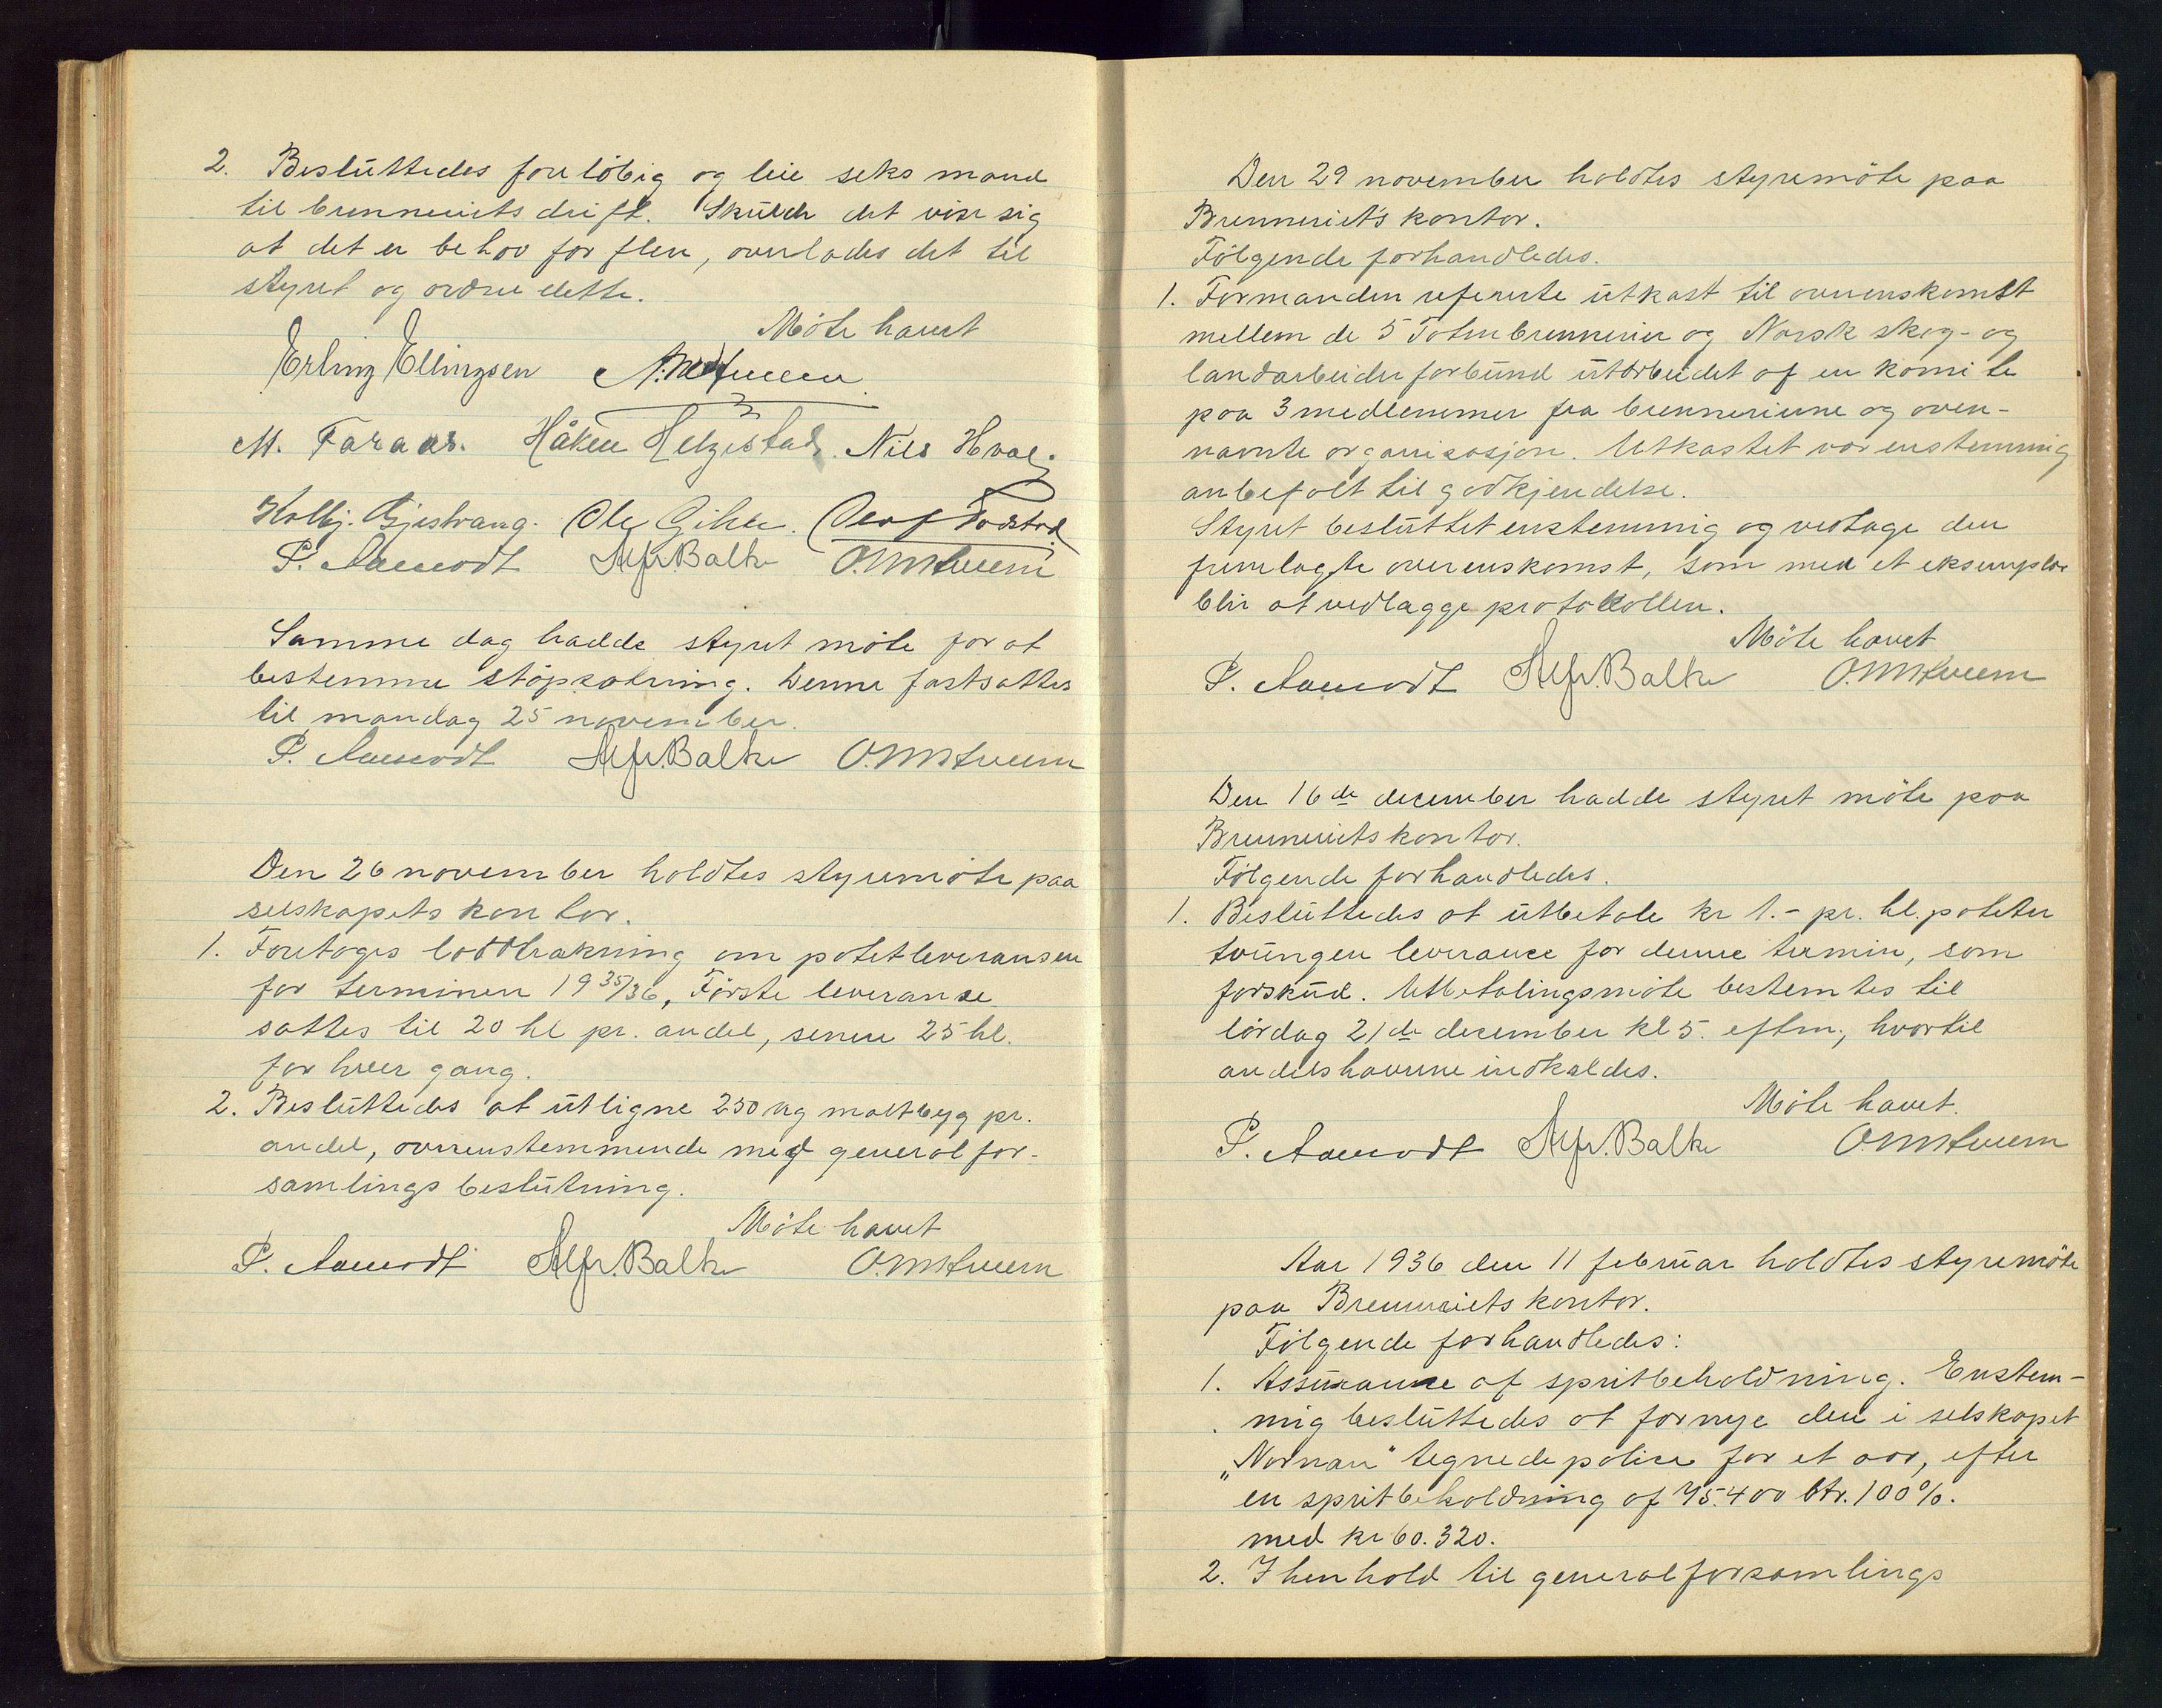 2. Besluttedes foreløbig og leie seks mand
til brenneriets drift. Skulde det vise sig
at det er behov for flere, overlades det til
styret og ordne dette.
Möte hævet
Erling Ellingsen
M. Faraas. Håken Helgestad. Nils Hval.
Kolbj. Gjestvang. Ole Gihle.
P. Aamodt Alfr. Balke
Samme dag hadde styret möte for at
bestemme støpsætning. Denne fastsattes
til mandag 25 november.
P. Aamodt Alfr. Balke
Den 26 november holdtes styremöte paa
selskapets kontor.
1. Foretoges loddtrækning om potetleveransen
for terminen 1935/36, Första leveranse
sattes til 20 hl pr. andel, senere 25 hl.
for hver gang.
2. Besluttedes at utligne 250 kg maltbyg pr.
andel, overenstemmende med generalfor-
samlings beslutning.
Möte hævet
P. Aamodt Alfr. Balke
Den 29 november holdtes styremöte paa
Brenneriet's kontor.
Fölgende forhandledes.
1. Formanden refererte utkast til overenskomst
mellem de 5 Totenbrennerier og Norsk skog- og
landarbeiderforbund utarbeidet af en komite
paa 3 medlemmer fra brenneriene og oven-
nævnte organisasjon. Utkastet var enstemmig
anbefalt til godkjendelse.
Styret besluttet enstemmig og vedtage den
fremlagte overenskomst, som med et eksemplar
blir at vedlægge protokollen.
Möte hævet
P. Aamodt Alfr. Balke
Den 16de december hadde styret möte paa
Brenneriets kontor.
Fölgende forhandledes.
1. Besluttedes at utbetale kr 1.- pr. hl. poteter
tvungen leverance for denne termin, som
forskud. Utbetalingsmöte bestemtes til
lördag 21de december kl 5. eftm., hvortil
andelshaverne indkaldes.
Möte hævet.
P. Aamodt Alfr. Balke
Aar 1936 den 11 februar holdtes styremöte
paa Brenneriets kontor.
Fölgende forhandledes:
1. Assurance af spritbeholdning. Enstem-
mig besluttedes at fornye den i selskapet
„Nornan" tegnede police for et aar, efter
en spritbeholdning af 75.400 ltr. 100%.
med kr 60.320.
2. I henhold til generalforsamlings